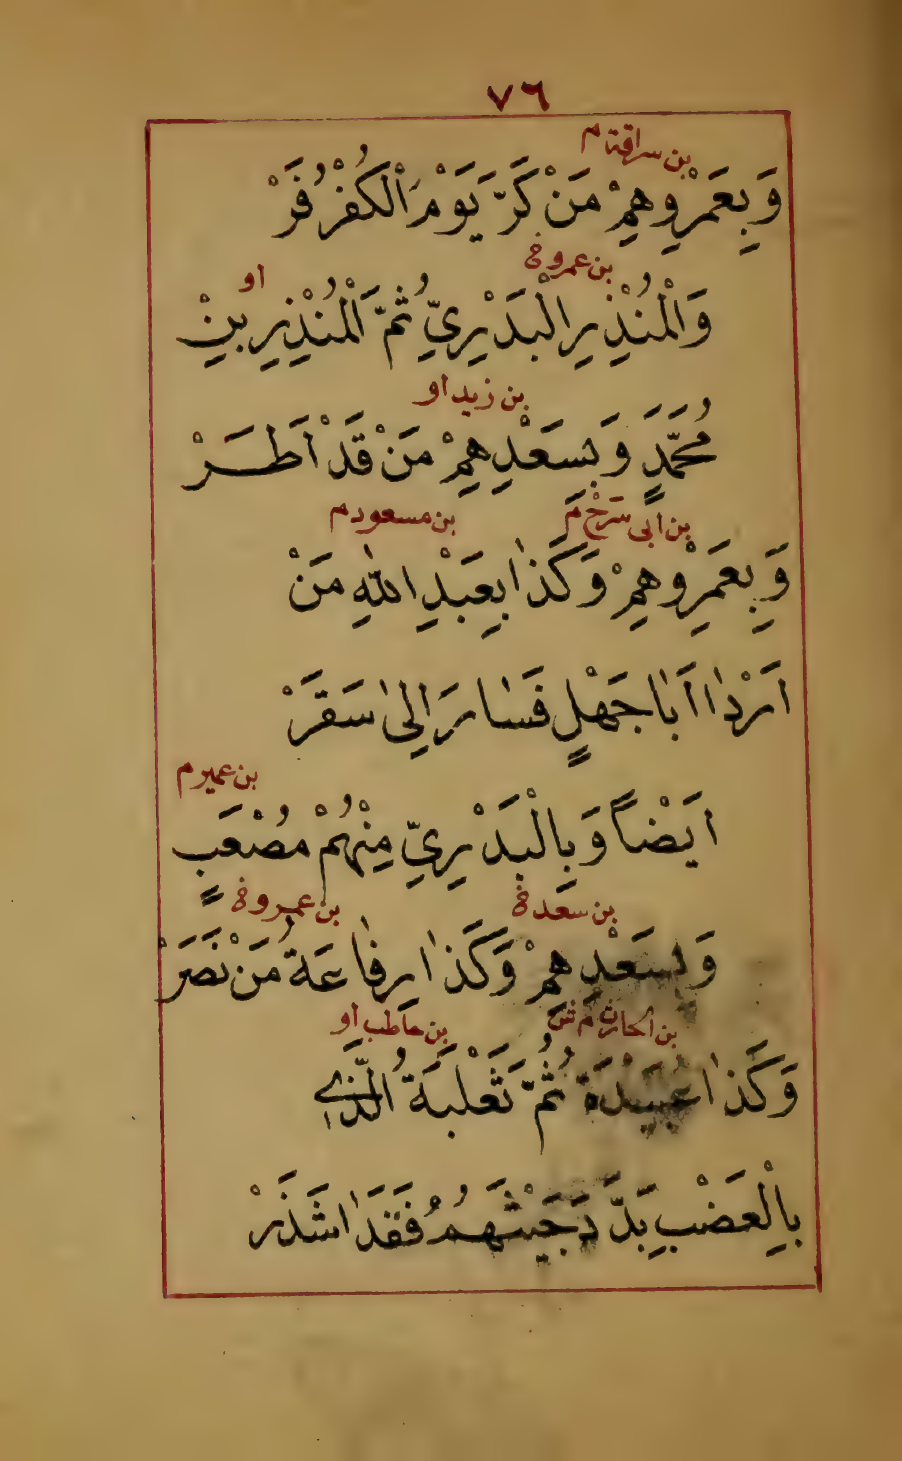 ٧٦
بن سراقة م
وَبِعَمْرِوهِمِ مَنْ كَرَّ يَوْمَ الْكُفْرُ فَرْ
بن عمرو خ او
وَالْمُنْذِرِ الْبَدْرِيِّ ثُمَّ الْمُنْذِرِ بْنِ
بن زيد او
مُحَمَّدٍ وَبِسَعْدِهِمِ مَنْ قَدْ اَطَرْ
بن ابى سرح م بن مسعود م
وَبِعَمْرِوهِمِ وَكَذَا بِعَبْدِ اللهِ مَنْ
اَرْدٰا اَبَا جَهْلٍ فَسٰارَ اِلىٰ سَقَرْ
بن عمير م
اَيْضاً وَبِالْبَدْرِيِّ مِنْهُمْ مُصْعَبٍ
بن سعد خ بن عمرو خ
وَبِسَعْدِهِمِ وَكَذٰا رِفَاعَةُ مَنْ نَصَرْ
بن الحارث م ش بن حاطب او
وَكَذٰا عُبَيْدَةُ ثُمَّ ثَعْلَبَةُ الَّذِي
بِالْعَضْبِ بَدَّدَ جَيْشَهُمُ فَقَدَ اشْذَرْ